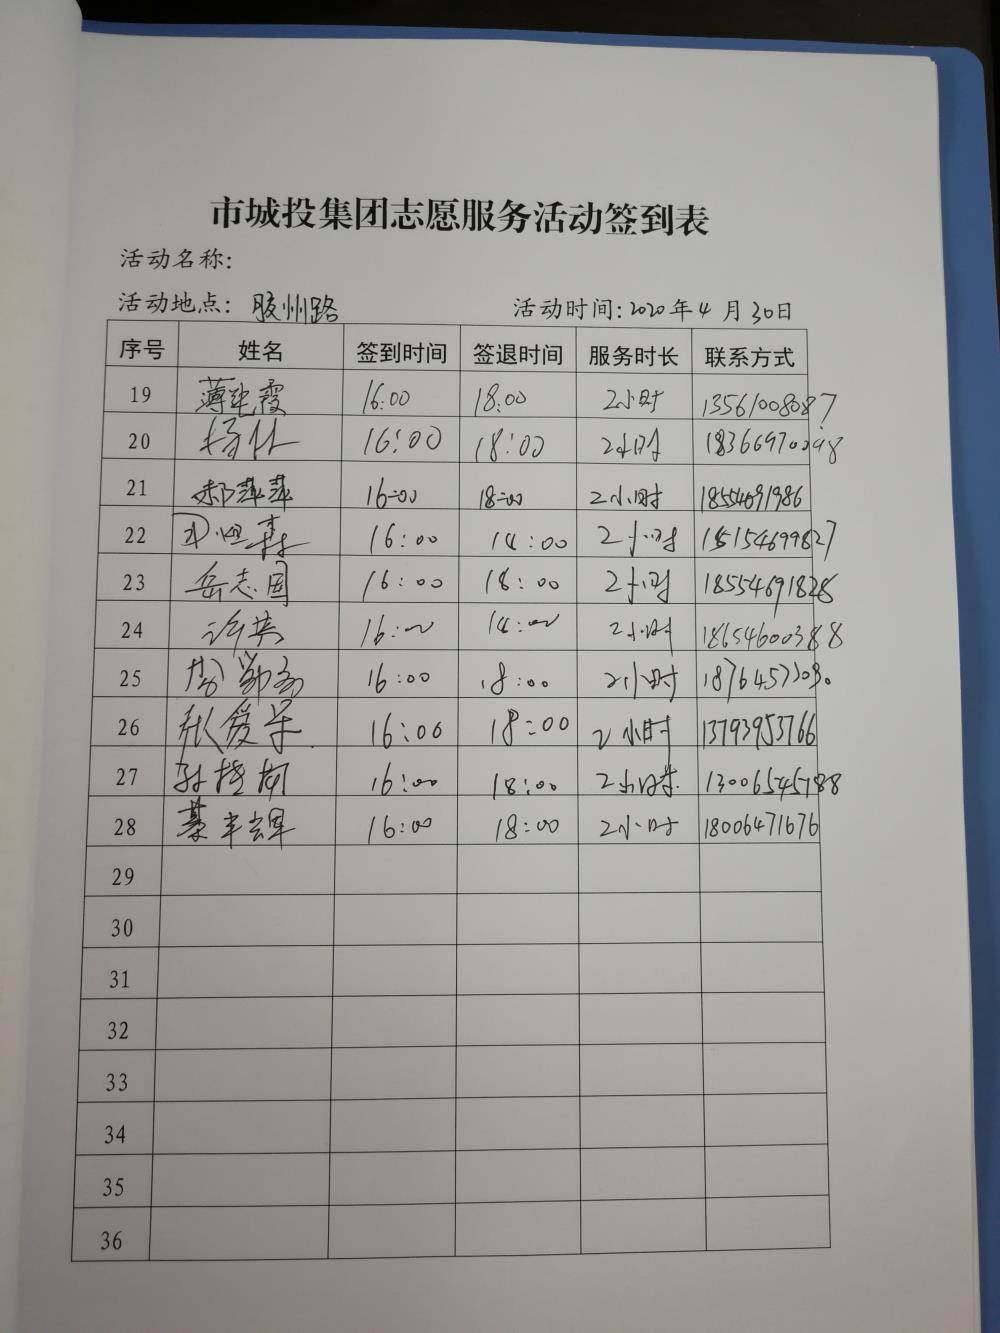 市城投集团志愿服务活动签到表
活动名称:
活动地点: 胶州路 活动时间:2020年4月30日
序号 姓名 签到时间 签退时间 服务时长 联系方式
19 薄纯霞 16:00 18:00 2小时 13561008087
20 16:00 18:00 2小时
21 郝萍萍 16:00 18:00 2小时 18554691986
22 16:00 18:00 2小时 15154699827
23 岳志国 16:00 18:00 2小时 18554691828
24 许英 16:00 18:00 2小时 18654600388
25 16:00 18:00 2小时
26 张爱军 16:00 18:00 2小时 13793953766
27 16:00 18:00 2小时 13006545188
28 16:00 18:00 2小时 18006471676
29
30
31
32
33
34
35
36